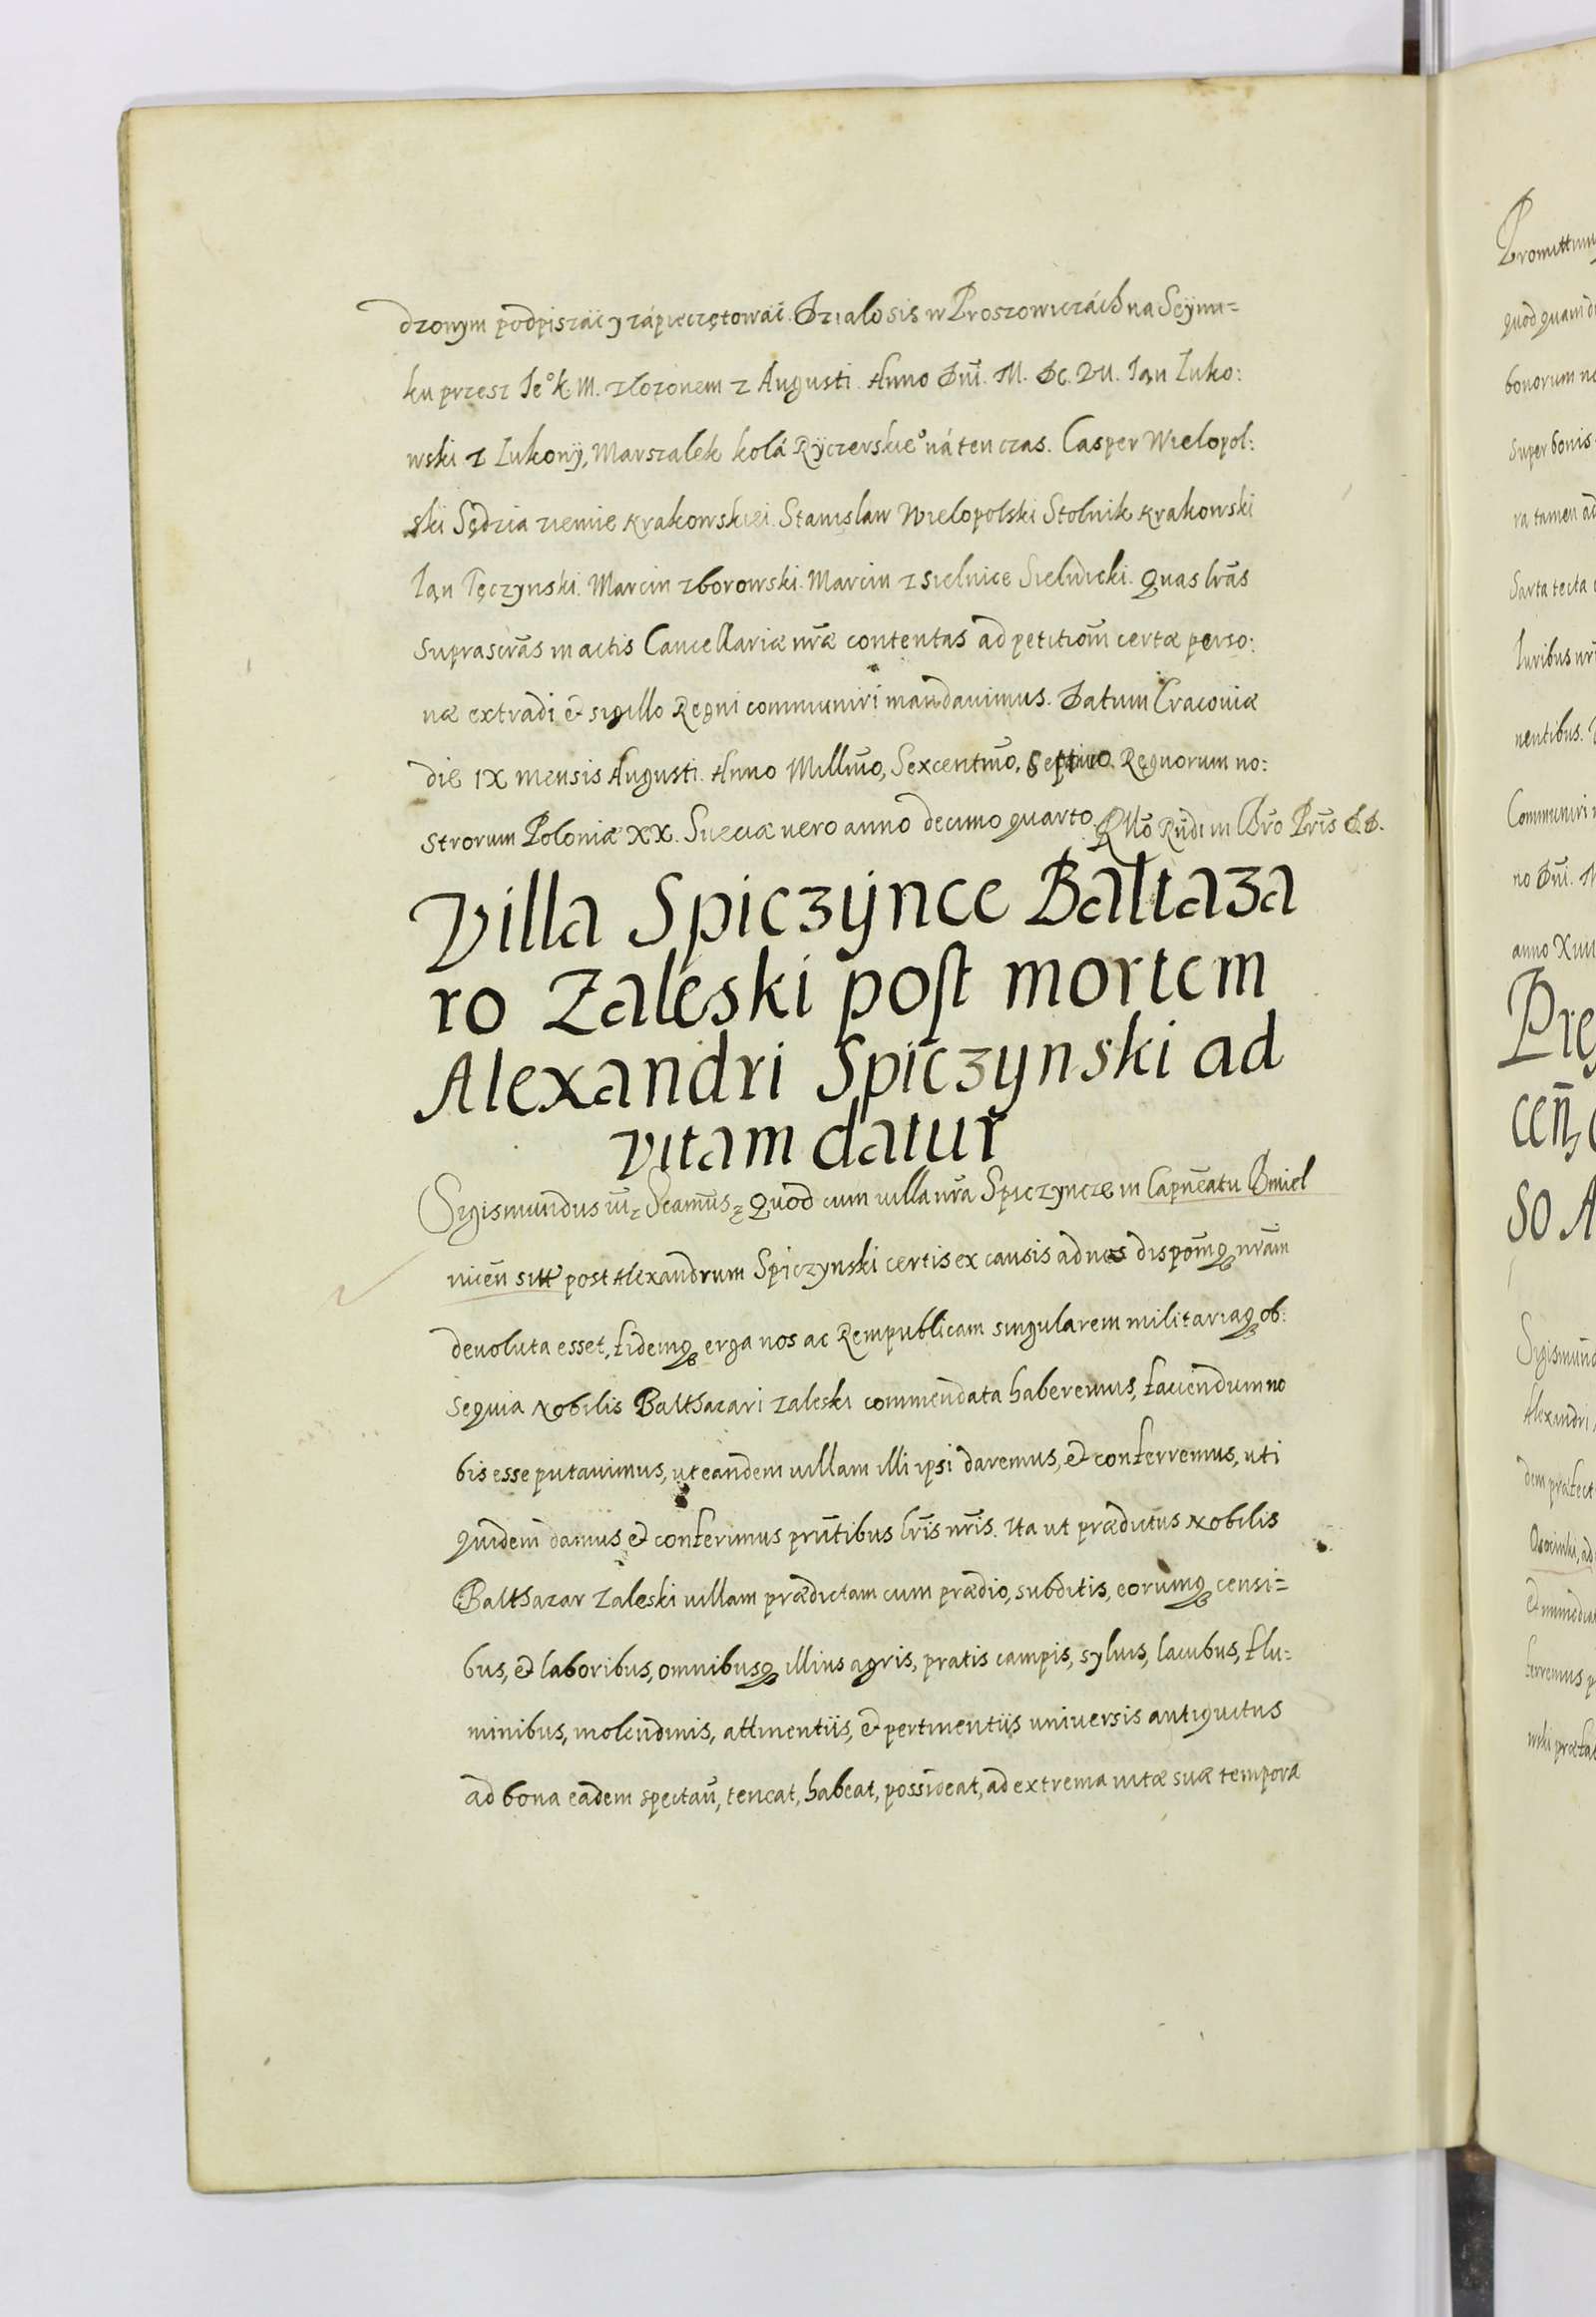 dzonym podpiszáć y zápieczętowáć. Dzialo sis w Proszowiczách na Seÿmi=
ku przesz Je° K. M. złozonem z Augusti. Anno Dnī. M. Dc. VII. Ian Łuko:
wski z Łukowÿ, Marszalek kolá Rÿczerskie° ná ten czas. Casper Wielopol:
ski Sędzia ziemie Krakowskiei. Stanislaw Wielopolski Stolnik Krakowski
Ian Tęczynski. Marcin Zborowski. Marcin z Sielnice Sielnicki. Quas lrās
suprascrās in actis Cancellariæ nrǣ contentas ad petitiom̄ certæ perso:
næ extradi et sigillo Regni communiri mandauimus. Datum Cracouiæ
die IX mensis Augusti. Anno Millmo, Sexcentmo, Septimo. Regnorum no:
strorum Poloniæ XX. Sueciæ uero anno decimo quarto.
Villa Spiczÿnce Baltaza
ro Zaleski post mortem
Alexandri Spiczynski ad
vitam datur
Sigismundus iii. Scām̄us. Quod cum uilla nrā Spiczyncze in Capnēatu Chmiel
nicen̄ sitt post Alexandrum Spiczynski certis ex causis ad nos dispom̄q nrām
deuoluta esset, fidemq erga nos ac Rempublicam singularem militariaq ob:
sequia Nobilis Balthazari Zaleski commendata haberemus, faciendum no
bis esse putauimus, ut eandem uillam illi ipsi daremus, et conferremus, uti
quidem damus et conferimus prn̄tibus lrīs nrīs. Ita ut prædictus Nobilis
Balthazar Zaleski uillam prædictam cum prædio, subditis, eorumq censi=
bus, et laboribus, omnibusq illius agris, pratis campis, syluis, lacubus, flu:
minibus, molendinis, attinentiis, et pertinentiis uniuersis antiquitus
ad bona eadem spectan̄, teneat, habeat, possideat, ad extrema uitæ suæ tempora